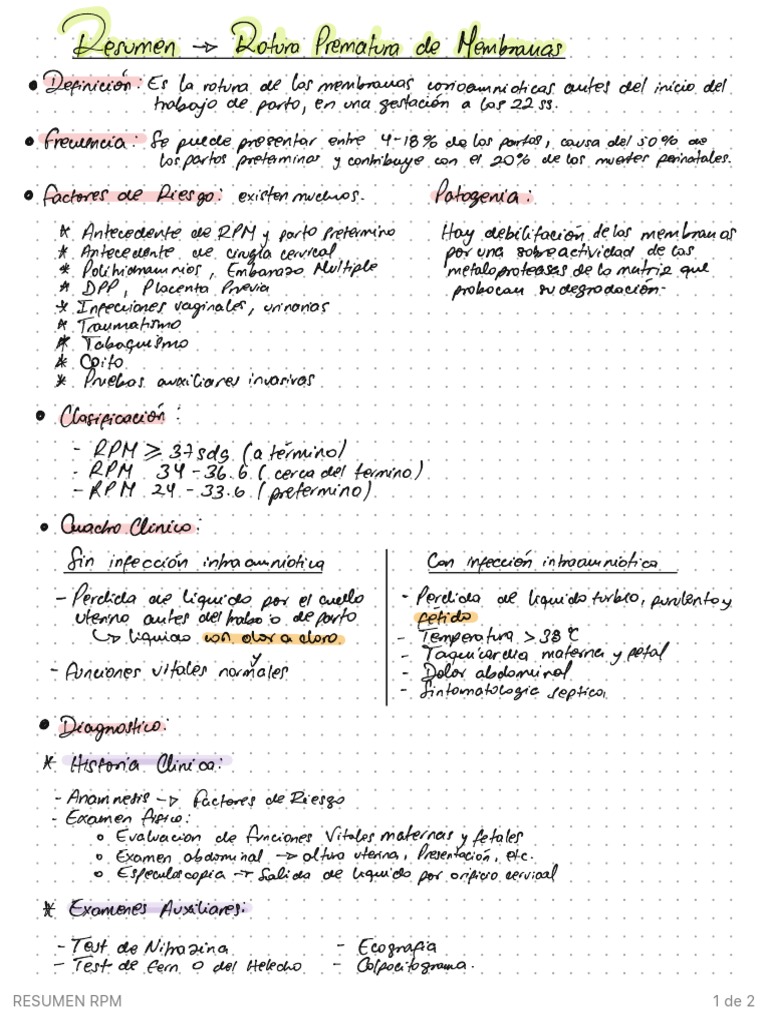 Resumen → Rotura Prematura de Membranas
• Definición: Es la rotura de las membranas corioamnioticas antes del inicio del
trabajo de parto, en una gestación a las 22 ss.
• Frecuencia: Se puede presentar entre 4-18% de los partos, causa del 50% de
los partos preterminos y contribuye con el 20% de las muertes perinatales.
• Factores de Riesgo: existen muchos.
* Antecedente de RPM y parto Pretermino
* Antecedente de cirugía cervical
* Polihidramnios, Embarazo Múltiple
* DPP, Placenta Previa
* Infecciones vaginales, urinarias
* Traumatismo
* Tabaquismo
* Coito
* Pruebas auxiliares invasivas
Patogenia:
Hay debilitación de las membranas
por una sobreactividad de las
metaloproteasas de la matriz que
probocan su degradación.
• Clasificación:
- RPM ≥ 37sdg (a término)
- RPM 34 - 36.6 (cerca del termino)
- RPM 24 - 33.6 (pretermino)
• Cuadro Clinico:
Sin infección intraamniótica
- Perdida de liquido por el cuello
uterino antes del trabajo de parto
↳ liquido con olor a cloro
y
- Funciones vitales normales
Con infección intraamniótica
- Perdida de liquido turbio, purulento y
fétido
- Temperatura > 38°C
- Taquicardia materna y fetal
- Dolor abdominal
- Sintomatologia septica
• Diagnostico:
* Historia Clinica:
- Anamnesis → Factores de Riesgo
- Examen fisico:
o Evaluacion de funciones Vitales maternas y fetales
o Examen abdominal → altura uterina, Presentación, etc.
o Especuloscopia → Salida de liquido por orificio cervical
* Examenes Auxiliares:
- Test de Nitrazina
- Test de Fern o del Helecho
- Ecografia
- Colpocitograma.
RESUMEN RPM
1 de 2